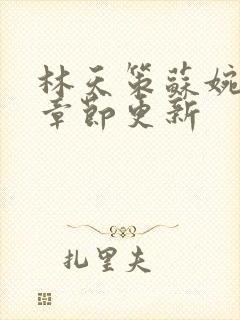 林天策蘇婉
章節更新
扎里夫